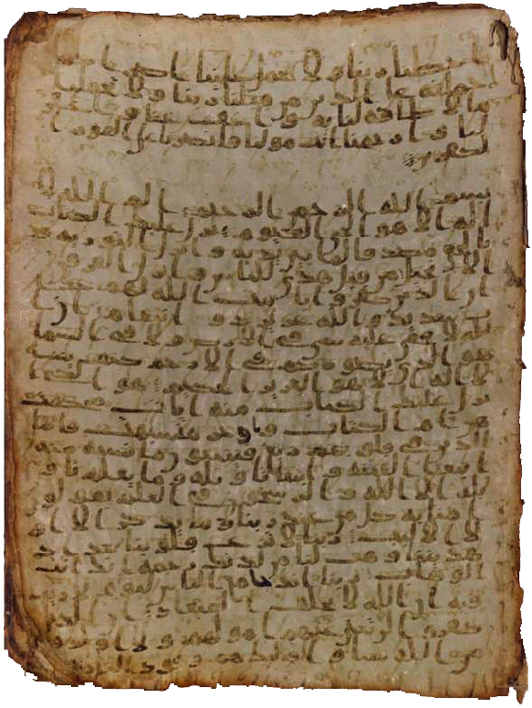 او اخطانا ربنا ولا تحمل علينا اصرا كما
حملته على الذين من قبلنا ربنا ولا تحملنا
ما لا طاقة لنا به واعف عنا واغفر
لنا وارحمنا انت مولنا فانصرنا على القوم ا
لكفرين
بسم الله الرحمن الرحيم الم الله لا
اله الا هو الحي القيوم نزل عليك الكتاب
بالحق مصدقا لما بين يديه وانزل التورية و
الانجيل من قبل هدى للناس وانزل الفرقن
ان الذين كفروا بايت الله لهم عذا
ب شديد والله عزيز ذو انتقام ان ا
لله لا يخفى عليه شي في الارض ولا في السما
هو الذي يصوركم في الارحم كيف يشا
لا اله الا هو العزيز الحكيم هو الذي ا
نزل عليك الكتاب منه ايات محكمت
هن ام الكتاب واخر متشبهت فاما
الذين في قلوبهم زيغ فيتبعون ما تشبه منه
ابتغا الفتنة وابتغا تاويله وما يعلم تاو
يله الا الله والرسخون في العلم يقولو
ن امنا به كل من عند ربنا وما يذكر الا ا
ولوا الالبب ربنا لا تزغ قلوبنا بعد اذ
هديتنا وهب لنا من لدنك رحمة انك انت
الوهاب ربنا انك جامع الناس ليوم لا ريب
فيه ان الله لا يخلف الميعاد ان الذين
كفروا لن تغني عنهم امولهم ولا اولدهم
من الله شيا واوليك هم وقود النار